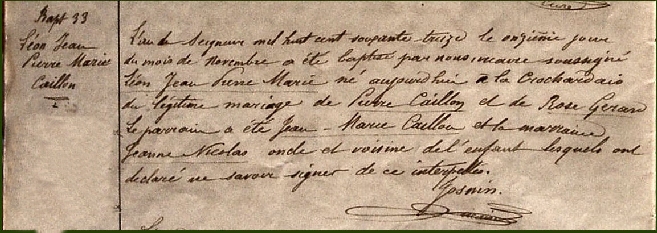 Bapt 33
Léon Jean
Pierre Marie
Caillon
L'an du Seigneur mil huit cent soixante-treize le onzième jour
du mois de Novembre a été baptisé par nous vicaire soussigné
Léon Jean Pierre Marie né aujourd'hui à la Crochardais
du légitime mariage de Pierre Caillon et de Rose Gerard
le parrain a été Jean-Marie Caillon et la marraine
Jeanne Nicolas oncle et voisine de l'enfant lesquels ont
déclaré ne savoir signer de ce interpellés.
Josnin.